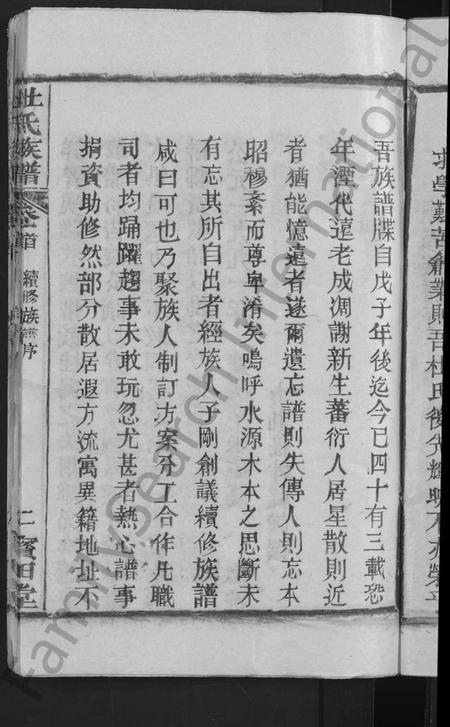 求學艱苦創業則吾杜氏後先輝映不亦榮乎
吾族譜牒自戊子年後迄今已四十有三載恐
年湮代遠老成凋謝新生蕃衍人居星散則近
者猶能憶遠者遂爾遺忘譜則失傳人則忘本
昭穆紊而尊卑淆矣嗚呼水源木本之思斷未
有忘其所自出者經族人子剛創議續修族譜
咸曰可也乃聚族人制訂方案分工合作凡職
司者均踊躍趨事未敢玩忽尤甚者熱心譜事
捐資助修然部分散居遐方流寓異籍地址不
杜氏族譜 卷首 續修族譜序 二 寶田堂
FamilySearch International